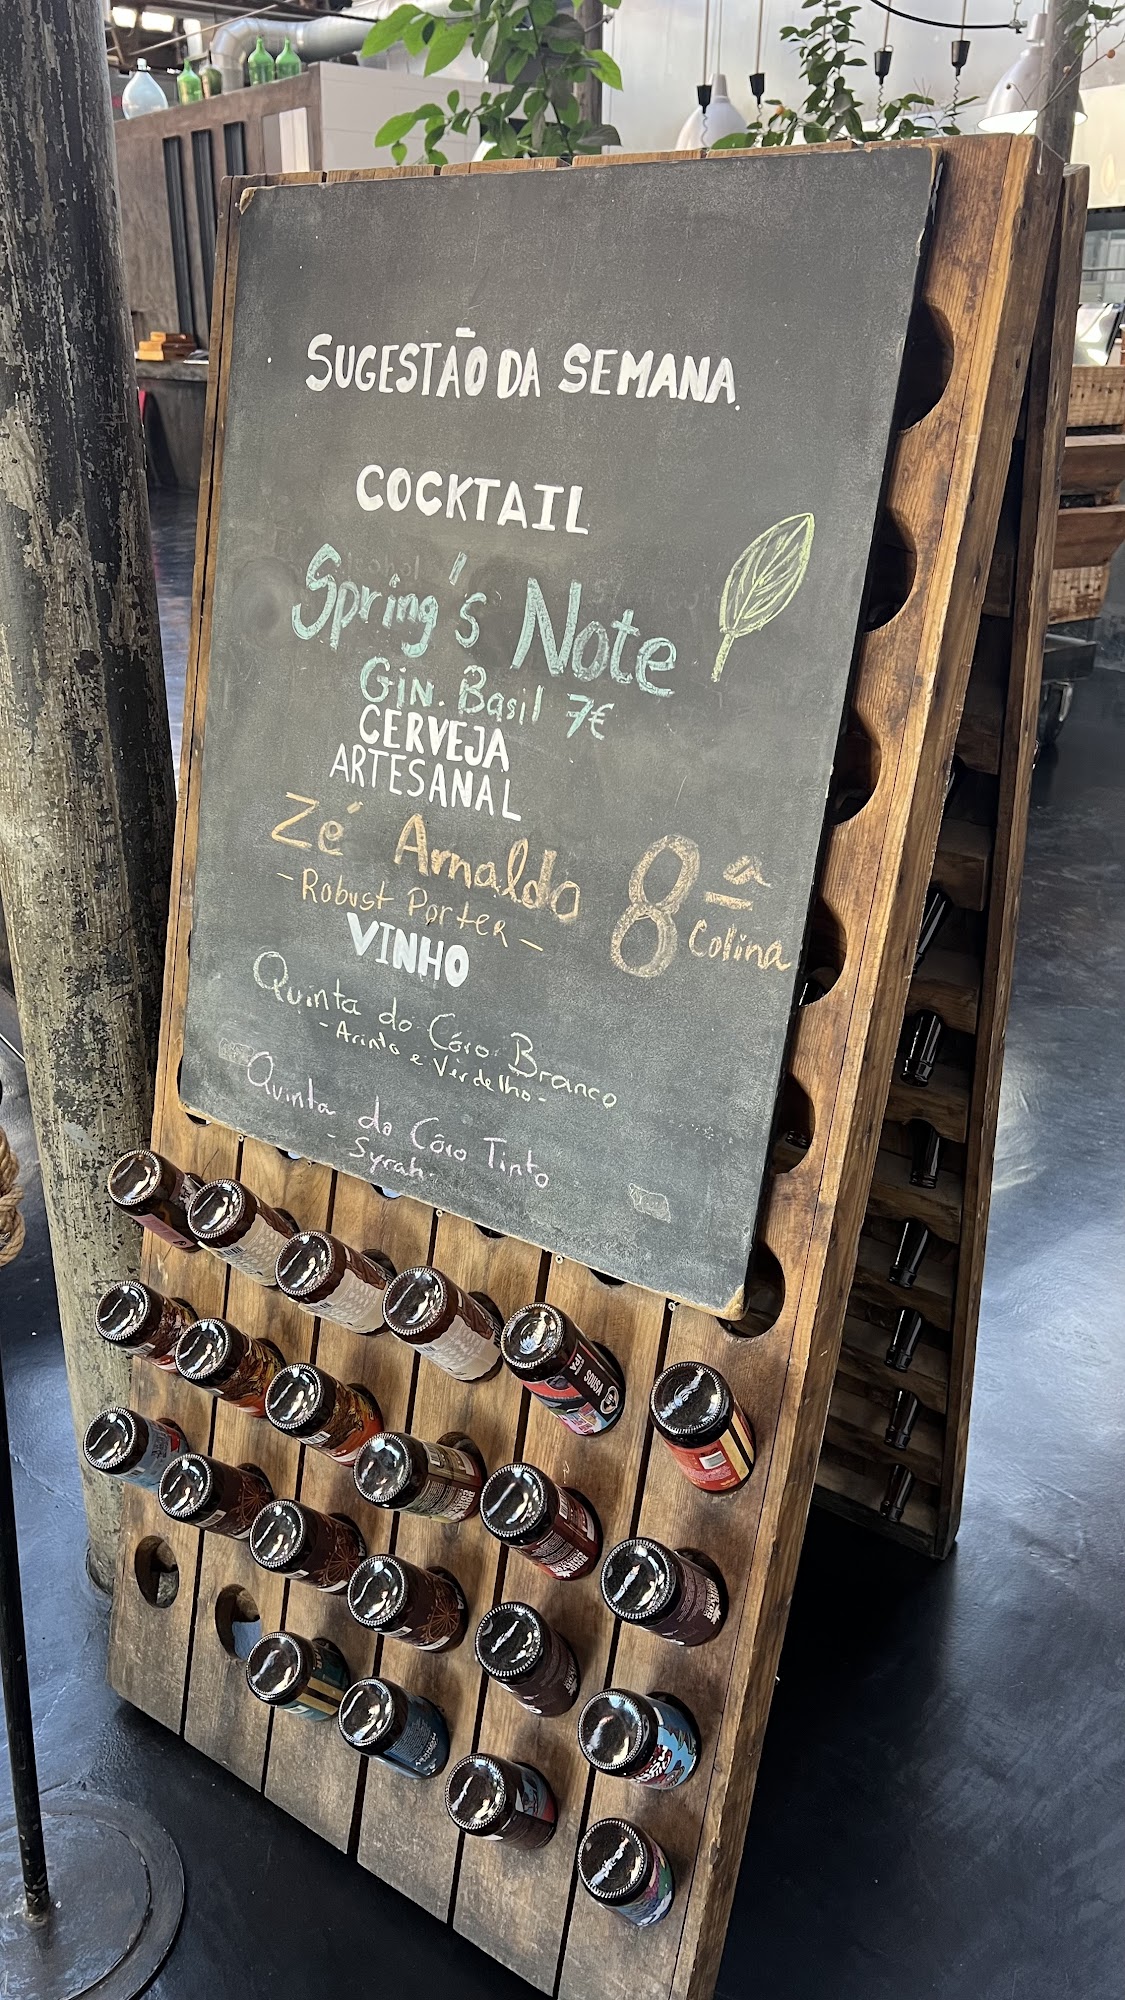 SUGESTÃO DA SEMANA.
COCKTAIL
Spring's Note
Gin. Basil 7€
CERVEJA
ARTESANAL
Zé Arnaldo
- Robust Porter -
8ª
Colina
VINHO
Quinta do Côro Branco
- Arinto e Verdelho -
Quinta do Côro Tinto
- Syrah -
IPA
SOUSA